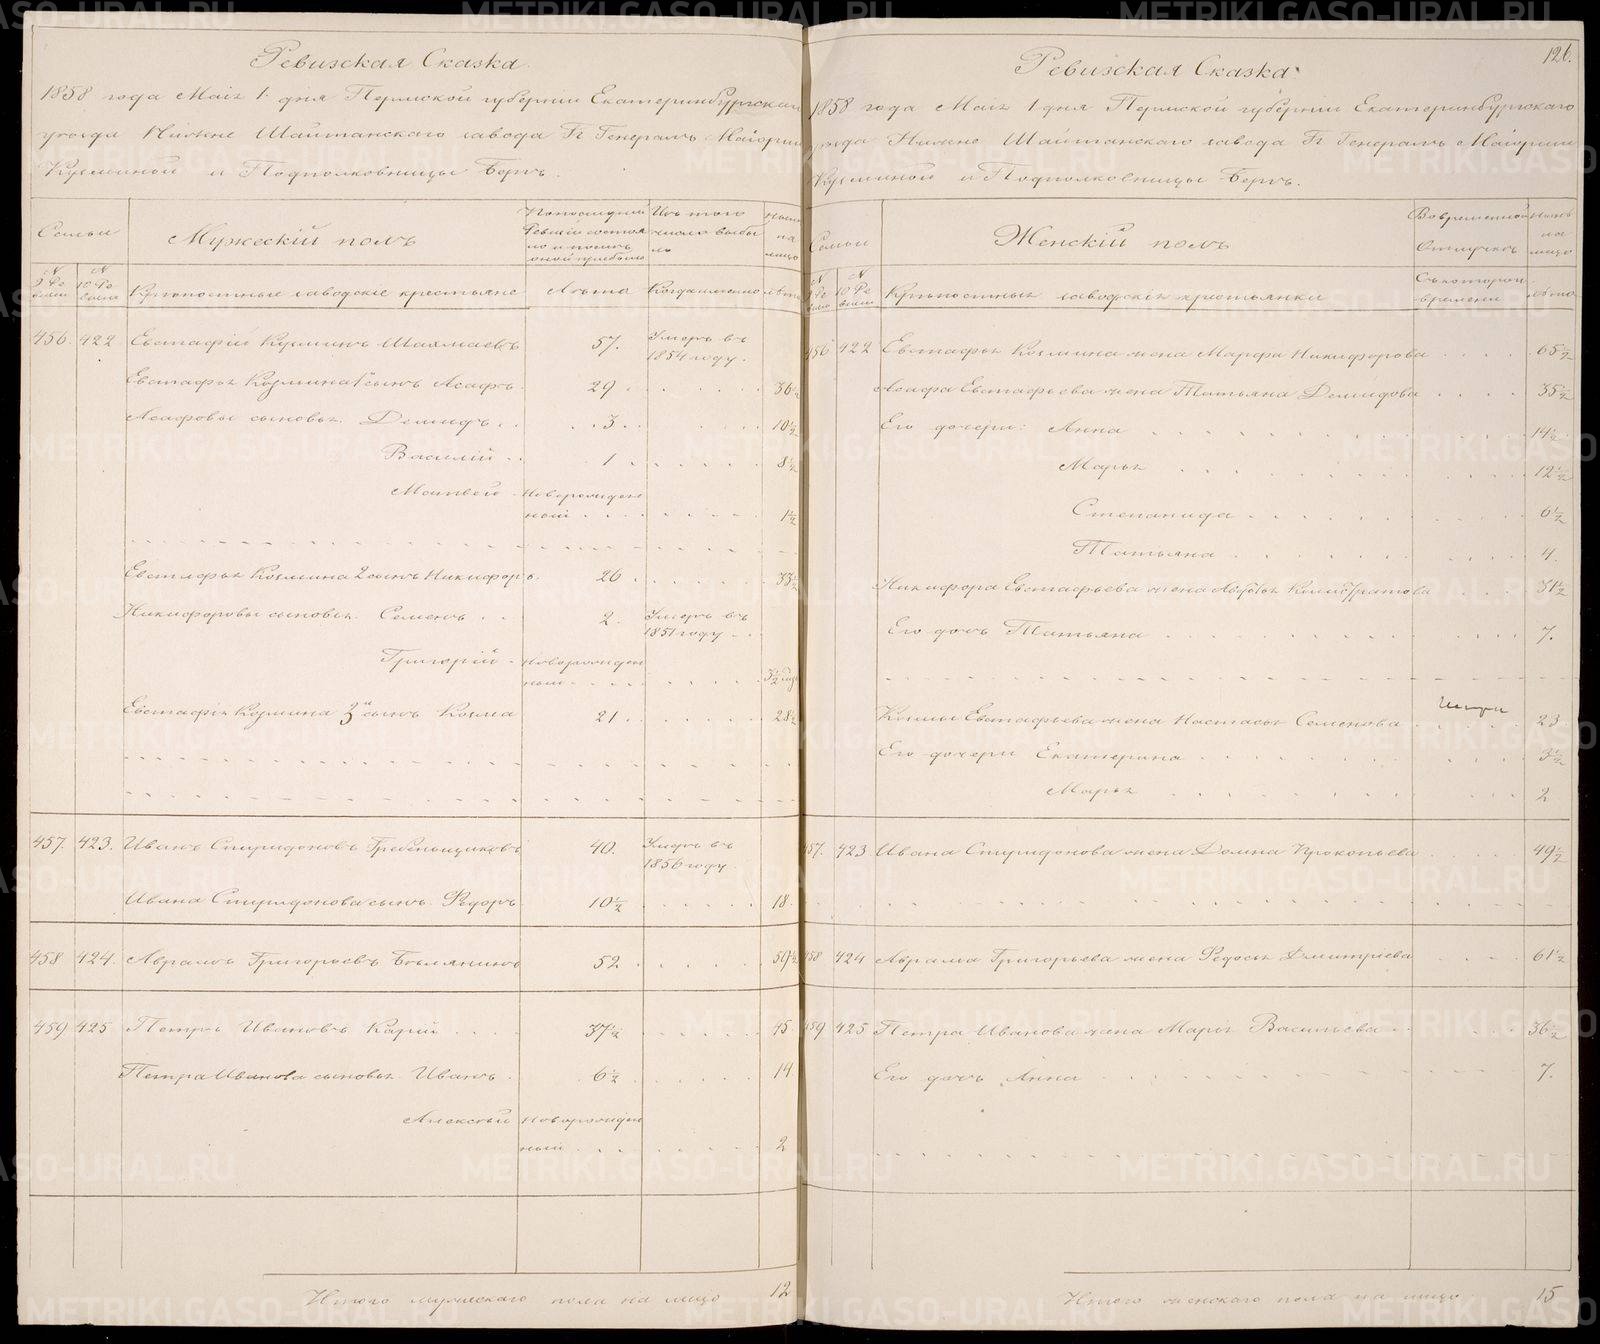 Ревизская Сказка.
1858 года Маія 1 дня Пермской губерніи Екатеринбургскаго
уезда Нижне Шайтанскаго завода Гг Генералъ Маіорши
Кузьминой и Подполковницы Бергъ.
Семьи
Мужескій полъ
Ревизіи состоя
ло и после
оной прибыло
Изъ того
числа выбы
ло
Ныне
на
лицо
№ 9 Ре
визіи
№ 10 Ре
визіи
Крѣпостные заводскіе крестьяне
Лѣта
Когда именно
Лѣта
456. 422 Евстафій Кузминъ 57. Умеръ въ
1854 году.
Евстафья Козмина 1 сынъ Асафъ. 29 36½
Асафовы сыновья. Демидъ. 3. 10½
Василій 1 8½
Матвей Новорожден
ный 1½
Евстафья Козмина 2 сынъ Никифоръ. 26 33½
Никифоровы сыновья. Семенъ 2. Умеръ въ
1851 году
Григорій Новорожден
ный 3½
Евстафія Козмина 3й сынъ Козма 21 28½
457. 423. Иванъ Спиридоновъ Гребеньщиковъ 40. Умеръ въ
1856 году
Ивана Спиридонова сынъ Ѳедоръ 10½ 18
458 424. Аврамъ Григорьевъ Бѣлянинъ 52 59½
459 425 Петръ Ивановъ Карій 37½ 45
Петра Иванова сыновья Иванъ 6½ 14
Алексѣй Новорожден
ный 2
Итого мужескаго пола на лицо 12
126.
Ревизская Сказка
1858 года Маія 1 дня Пермской губерніи Екатеринбургскаго
уезда Нижне Шайтанскаго завода Гг Генералъ Маіорши
Кузьминой и Подполковницы Бергъ.
Семьи
Женскій полъ
Во временной
отлучкѣ
Ныне
на
лицо
№ 9 Ре
визіи
№ 10 Ре
визіи
Крѣпостныя заводскія крестьянки
Съ котораго
времени
Лѣта
456 422 Евстафья Козмина жена Марфа Никифорова 65½
Асафа Евстафьева жена Татьяна Демидова 35½
Его дочери: Анна 14½
Марья 12½
Степанида 6½
Татьяна 4.
Никифора Евстафьева жена Калистратова 31½
Его дочь Татьяна 7.
Козмы Евстафьева жена Настасья Семенова 23
Его дочери Екатерина 3½
Марья 2
457. 423 Ивана Спиридонова жена Домна Прокопьева 49½
458 424 Аврама Григорьева жена Ѳедосья Дмитріева 61½
459 425 Петра Иванова жена Марія Васильева 36½
Его дочь Анна 7.
Итого женскаго пола на лицо 15
METRIKI.GASO-URAL.RU